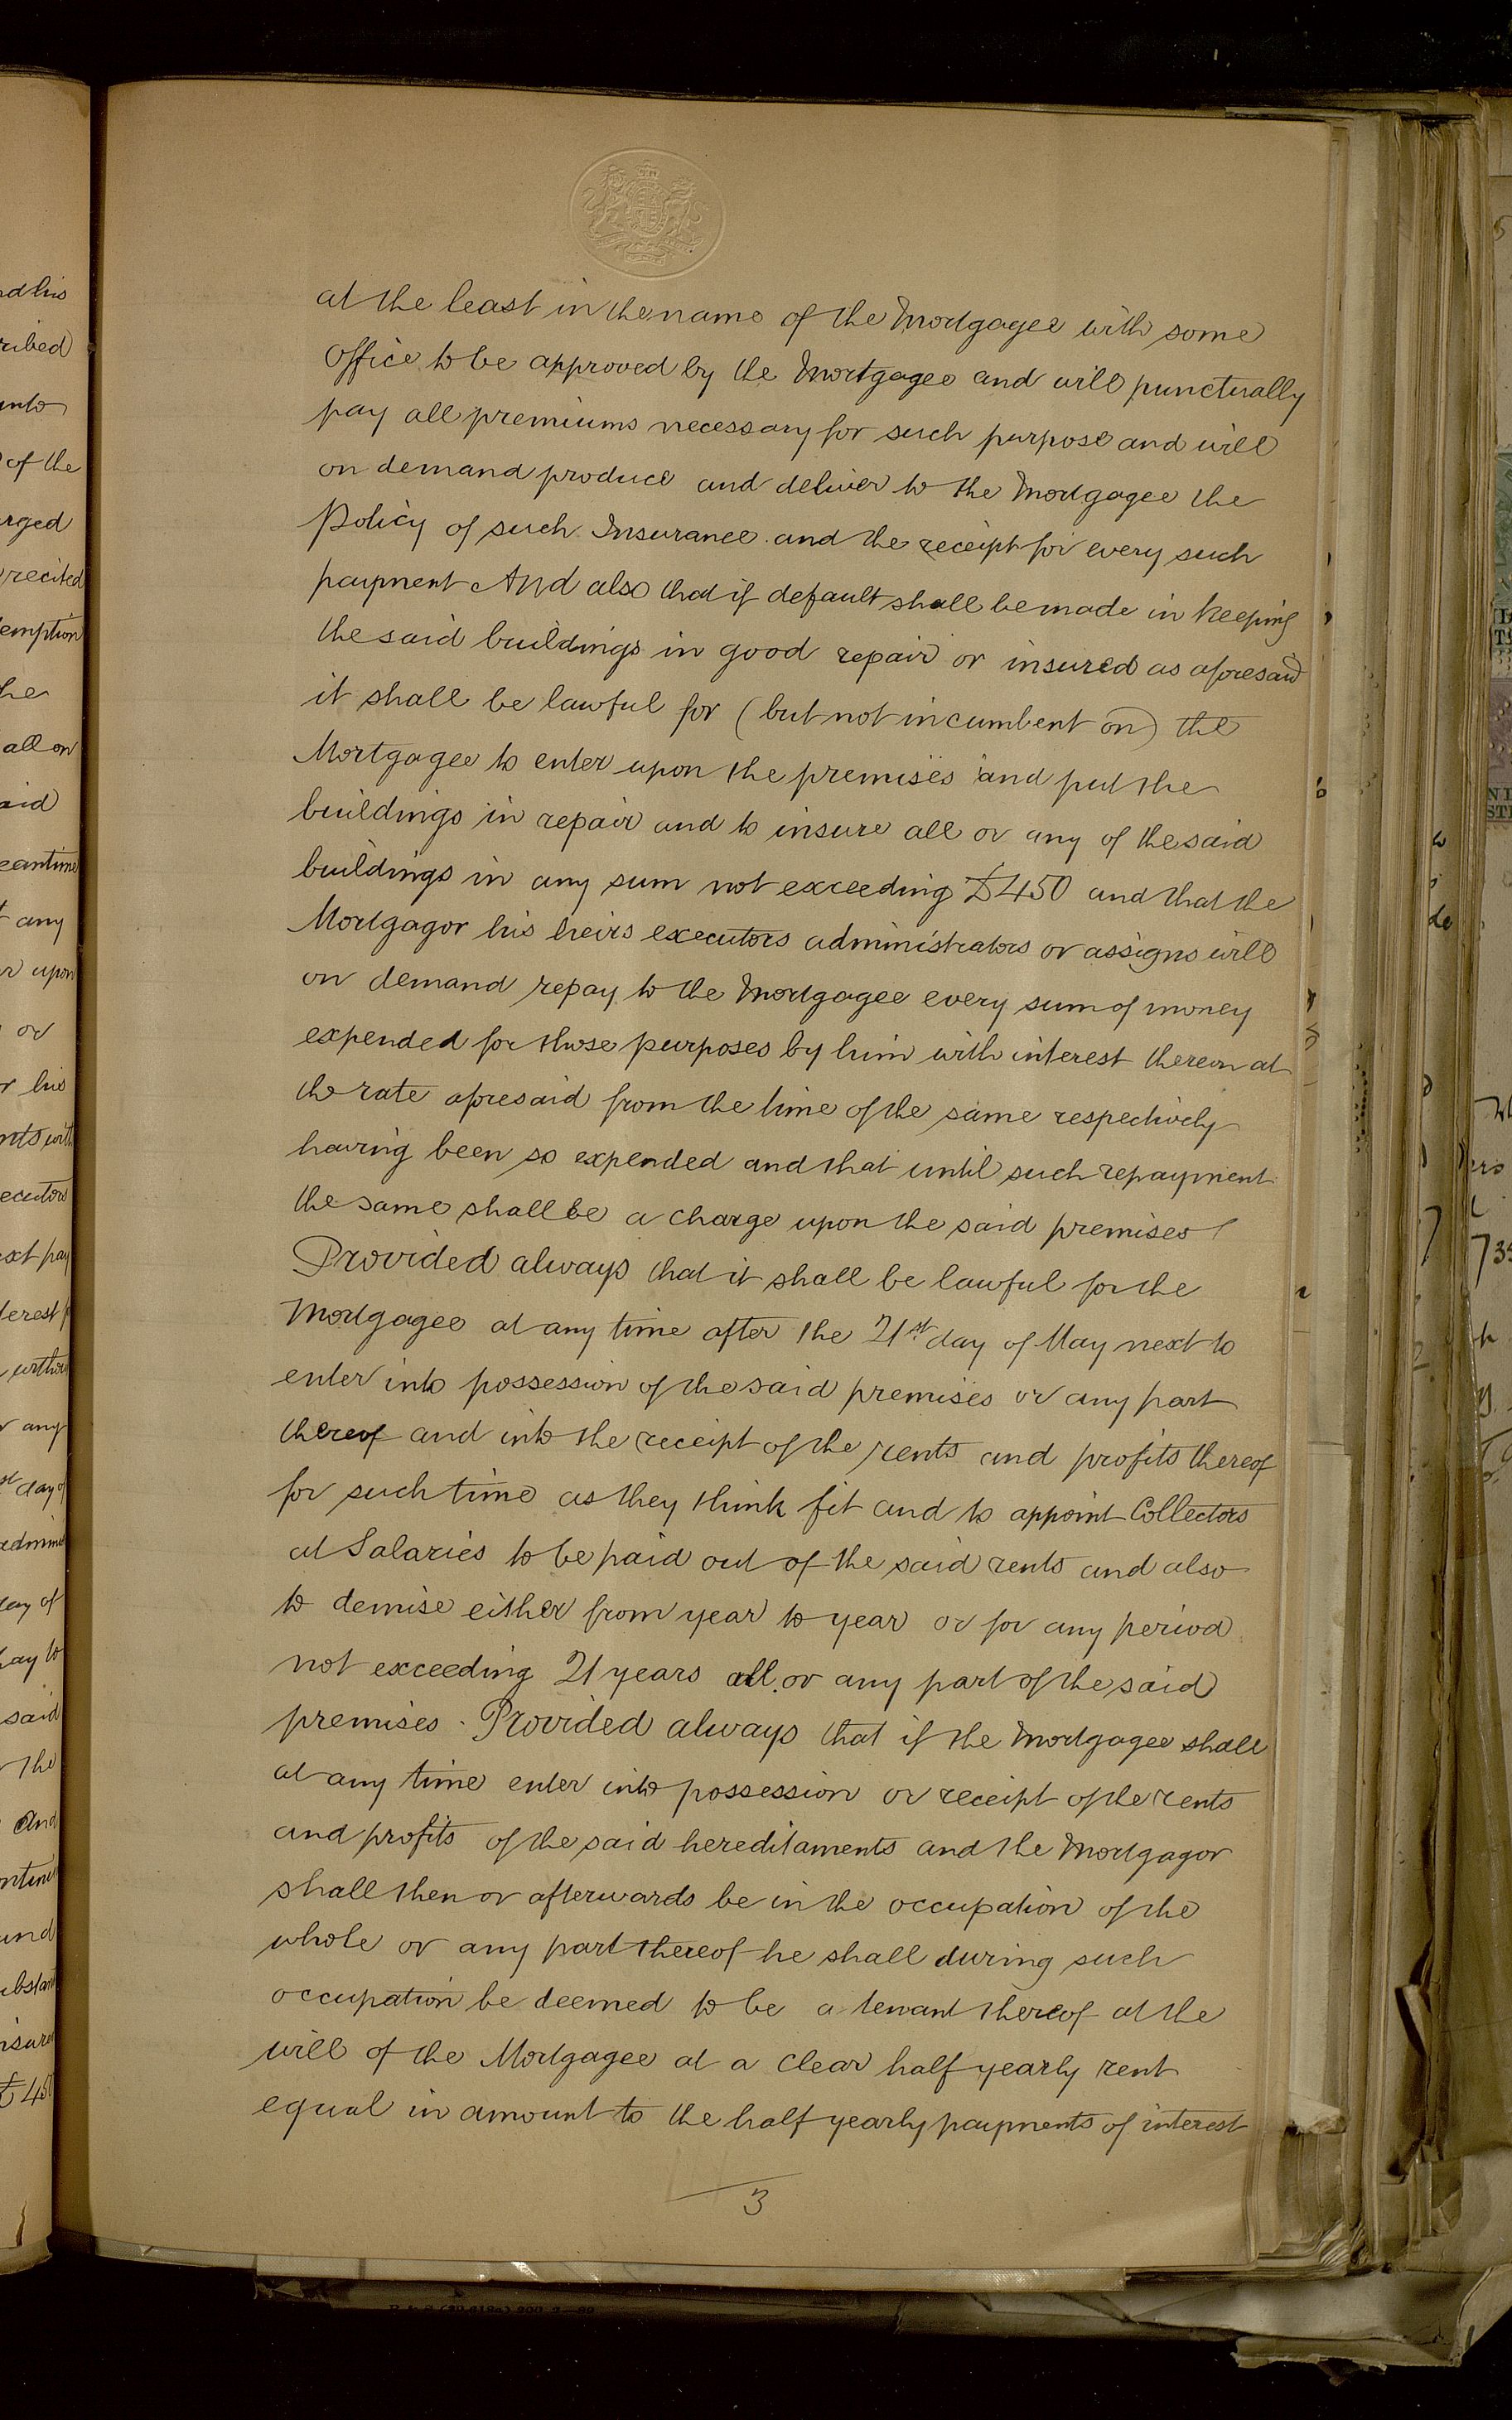 at the least in the name of the Mortgagee with some
Office to be approved by the Mortgagee and will punctually
pay all premiums necessary for such purpose and will
on demand produce and deliver to the Mortgagee the
Policy of such Insurance and the receipt for every such
payment And also that if default shall be made in keeping
the said buildings in good repair or insured as aforesaid
it shall be lawful for (but not incumbent on) the
Mortgagee to enter upon the premises and put the
buildings in repair and to insure all or any of the said
buildings in any sum not exceeding £450 and that the
Mortgagor his heirs executors administrators or assigns will
on demand repay to the Mortgagee every sum of money
expended for those purposes by him with interest thereon at
the rate aforesaid from the time of the same respectively
having been so expended and that until such repayment
the same shall be a charge upon the said premises
Provided always that it shall be lawful for the
Mortgagee at any time after the 21st day of May next to
enter into possession of the said premises or any part
thereof and into the receipt of the rents and profits thereof
for such time as they think fit and to appoint Collectors
at Salaries to be paid out of the said rents and also
to demise either from year to year or for any period
not exceeding 21 years all or any part of the said
premises. Provided always that if the Mortgagee shall
at any time enter into possession or receipt of the rents
and profits of the said hereditaments and the Mortgagor
shall then or afterwards be in the occupation of the
whole or any part thereof he shall during such
occupation be deemed to be a tenant thereof at the
will of the Mortgagee at a clear half yearly rent
equal in amount to the half yearly payments of interest
3